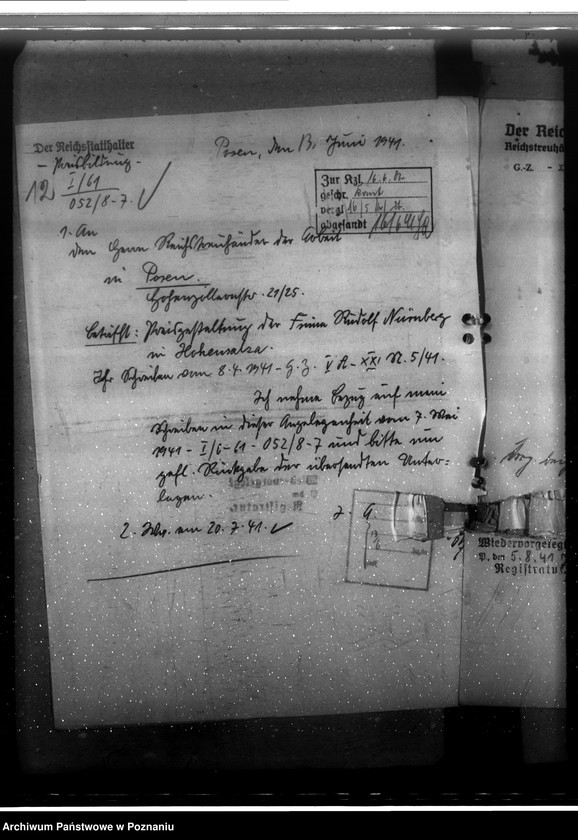 Der Reichsstatthalter
- Preisbildung -
I/61
052/8-7.
12
Posen, den 13. Juni 1941.
Zur Kzl. 16.6.
geschr.
vergl.
abgesandt
1. An
den Herrn Reichstreuhänder der Arbeit
in Posen.
Hohenzollernstr. 21/25.
Betrifft: Preisgestaltung der Firma Rudolf Nürnberg
in Hohensalza.
Ihr Schreiben vom 8.4.1941 - G.Z. V A - XXI N. 5/41.
Ich nehme Bezug auf mein
Schreiben in dieser Angelegenheit vom 7. Mai
1941 - I/6-61 - 052/8-7 und bitte um
gefl. Rückgabe der übersandten Unter-
lagen.
2. Wv. am 20.7.41.
J. A.
Der Reic
Reichstreuhä
G.-Z. - X
Wiedervorgeleg
P., den 5.8.41
Registratu
Archiwum Państwowe w Poznaniu